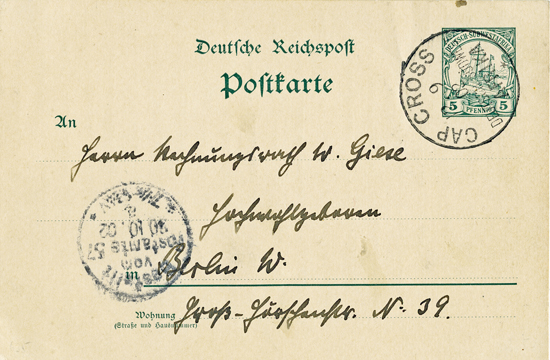 Deutsche Reichspost
Postkarte
DEUTSCH-SÜDWESTAFRIKA
5 PFENNIG 5
CAP CROSS
An
Herrn Rechnungsrath W. Giese
Hochwohlgeboren
in Berlin W.
Groß-Görschenstr. N. 39.
Wohnung
(Straße und Hausnummer)
Bestellt
vom
Postamte 57
30.10.02